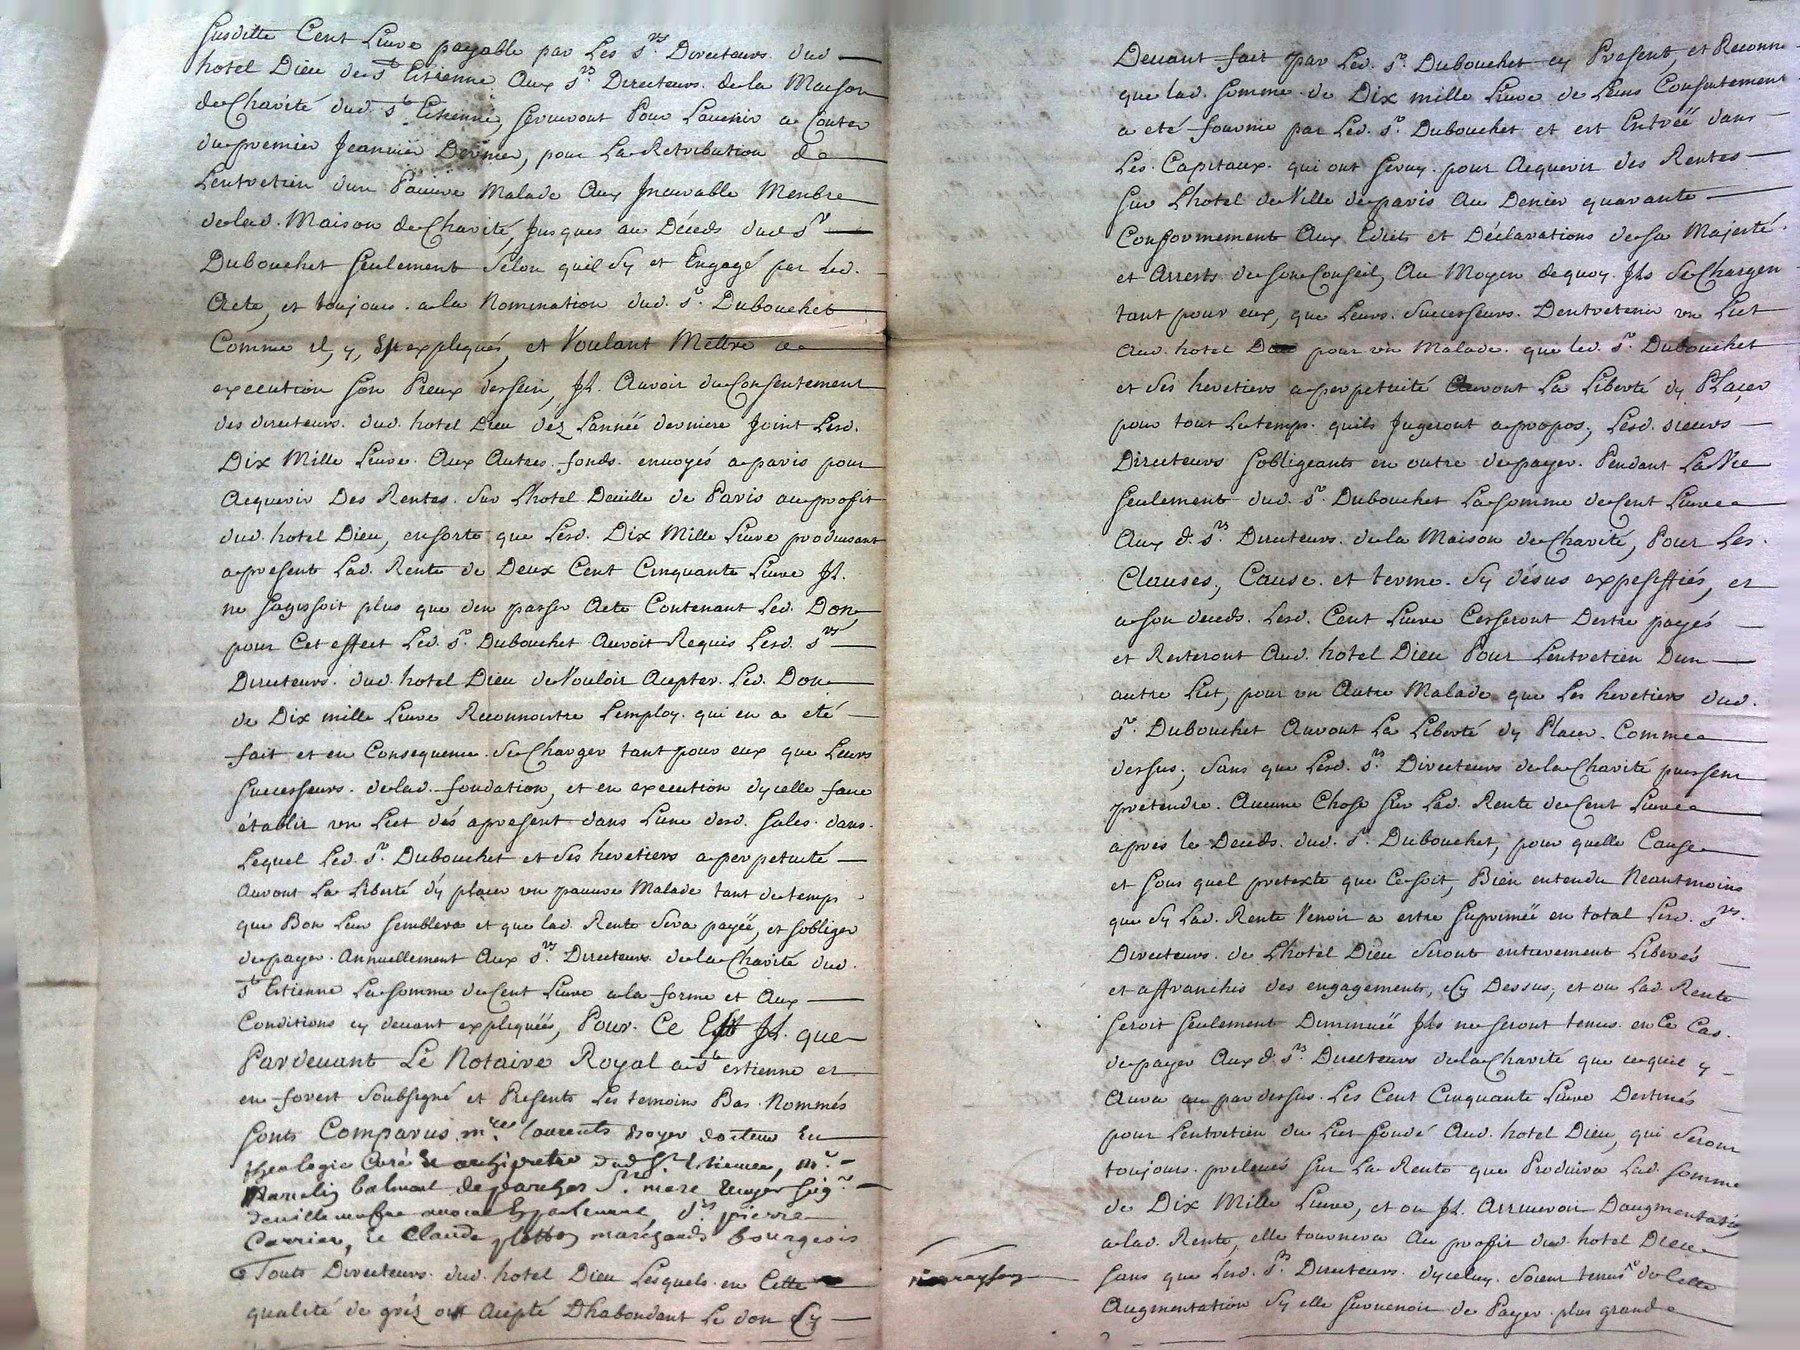 Susditte Cent Livre payable par Les Srs Directeurs dud
hotel Dieu de St Estienne Aux Srs Directeurs de la Maison
de Charité dud St Estienne, serviront Pour Lavenir a Conter
du premier Jeanvier Dernier, pour La Retribution de
Lentretien dun Pauvre Malade Aux Incurable Menbre
de lad. Maison de Charité, Jusques au Déceds dud Sr
Dubouchet Seulement Selon quil Sy et Engagé par led.
Acte, et toujours a la Nomination dud. Sr. Dubouchet
Comme il y, Est expliqués, et Voulant Mettre a
execution son Pieux dessein, Il Auroit du Consentement
des directeurs dud. hotel Dieu déz Lannëe derniere Joint Lesd.
Dix Mille Livre Aux Autres fonds envoyés a paris pour
Acquerir Des Rentes Sur L'hotel Deville de Paris au profit
dud. hotel Dieu, ensorte que Lesd. Dix Mille Livre produisant
apresent Lad. Rente de Deux Cent Cinquante Livre Il.
ne sagissoit plus que den passer Acte Contenant Led. Don
pour Cet effect Led. Sr Dubouchet Auroit Requis Lesd. Srs
Directeurs dud. hotel Dieu de Vouloir Acepter Led. Don
de Dix mille Livre Reconnoistre Lemploy qui en a eté
fait et en Consequence se Charger tant pour eux que Leurs
Successeurs de lad. fondation, et en execution dycelle faire
établir un Lict dés apresent dans Lune desd. Sales dans
Lequel Led. Sr. Dubouchet et Ses heretiers a perpetuité
Auront La Liberté dÿ placer un pauvre Malade tant de temps
que Bon Leur Semblera et que lad. Rente Sera payëe, et Sobliger
de payer Annuellement Aux Srs Directeurs de la Charité dud.
St Estienne La Somme de Cent Livre a la forme et Aux
Conditions cy devant expliquëes, Pour Ce Est Il que
Pardevant Le Notaire Royal a St estienne et
en forest Soubsigné et Presents Les temoins Bas Nommés
Sonts Comparus mre Laurents Royer docteur En
theologie Curé Et archipretre dud St Estienne, mr
balmont de St. marc Sigr
deville avocat En parlement Srs pierre
Carrier, Claude marchands bourgeois
Touts Directeurs dud. hotel Dieu Lesquels en Cette
qualité de gréz ont Acepté Dhabondant Le don Cy
Devant fait par Led. Sr. Dubouchet cy Present, et Reconnu
que lad. Somme de Dix mille Livre de Leurs Consentement
a eté fournie par Led. Sr. Dubouchet et est Entrëe dans
Les Capitaux qui ont Servy pour Acquerir des Rentes
Sur L'hotel de Ville de paris Au Denier quarante
Conformement Aux Edits et Déclarations de Sa Majesté.
et Arrests de Son Conseil, Au Moyen dequoy Ils Se Chargen
tant pour eux, que Leurs Successeurs Dentretenir un Lict
Aud. hotel Dieu pour un Malade que led. Sr. Dubouchet
et Ses heretiers a perpetuité Auront La Liberté dy PLacer
pour tout Le temps quils Jugeront apropos, Lesd. sieurs
Directeurs Sobligeants en outre de payer Pendant La Vie
Seulement dud. Sr. Dubouchet La Somme de Cent Livre
Aux d. Srs Directeurs de la Maison de Charité, Pour Les
Clauses, Cause et terme Sy désus expesiffiés, et
a Son deceds Lesd. Cent Livre Cesseront Destre payés
et Resteront Aud. hotel Dieu Pour Lentretien Dun
autre Lict, pour un Autre Malade que Les heretiers dud.
Sr. Dubouchet Auront La Liberté dy Placer Comme
dessus, Sans que Lesd. Srs Directeurs de la Charité puissent
pretendre Aucune Chose Sur Lad. Rente de Cent Livre
apres le Deceds dud. Sr. Dubouchet, pour quelle Cause
et Sous quel pretexte que Ce Soit, Bien entendu Neantmoins
que Sy Lad. Rente Venoit a estre Suprimëe en total Lesd. Srs
Directeurs de L'hotel Dieu Seront entierement Liberés
et affranchis des engagements, Cy Dessus, et ou Lad. Rente
Seroit Seulement Diminuëe Ils ne Seront tenus en Ce Cas
de payer Aux d. Srs Directeurs de la Charité que ce quil y
Aura au par dessus Les Cent Cinquante Livre Destinés
pour Lentretien du Lict fondé Aud. hotel Dieu, qui Seront
toujours prelevés Sur La Rente que Produira Lad. Somme
de Dix Mille Livre, et ou Il Arriveroit Daugmentation
a lad. Rente, elle tournera Au profit dud. hotel Dieu
Sans que Lesd. Srs Directeurs dyceluy Soient tenus de Cette
Augmentation Sy elle Survenoit de Payer plus grande